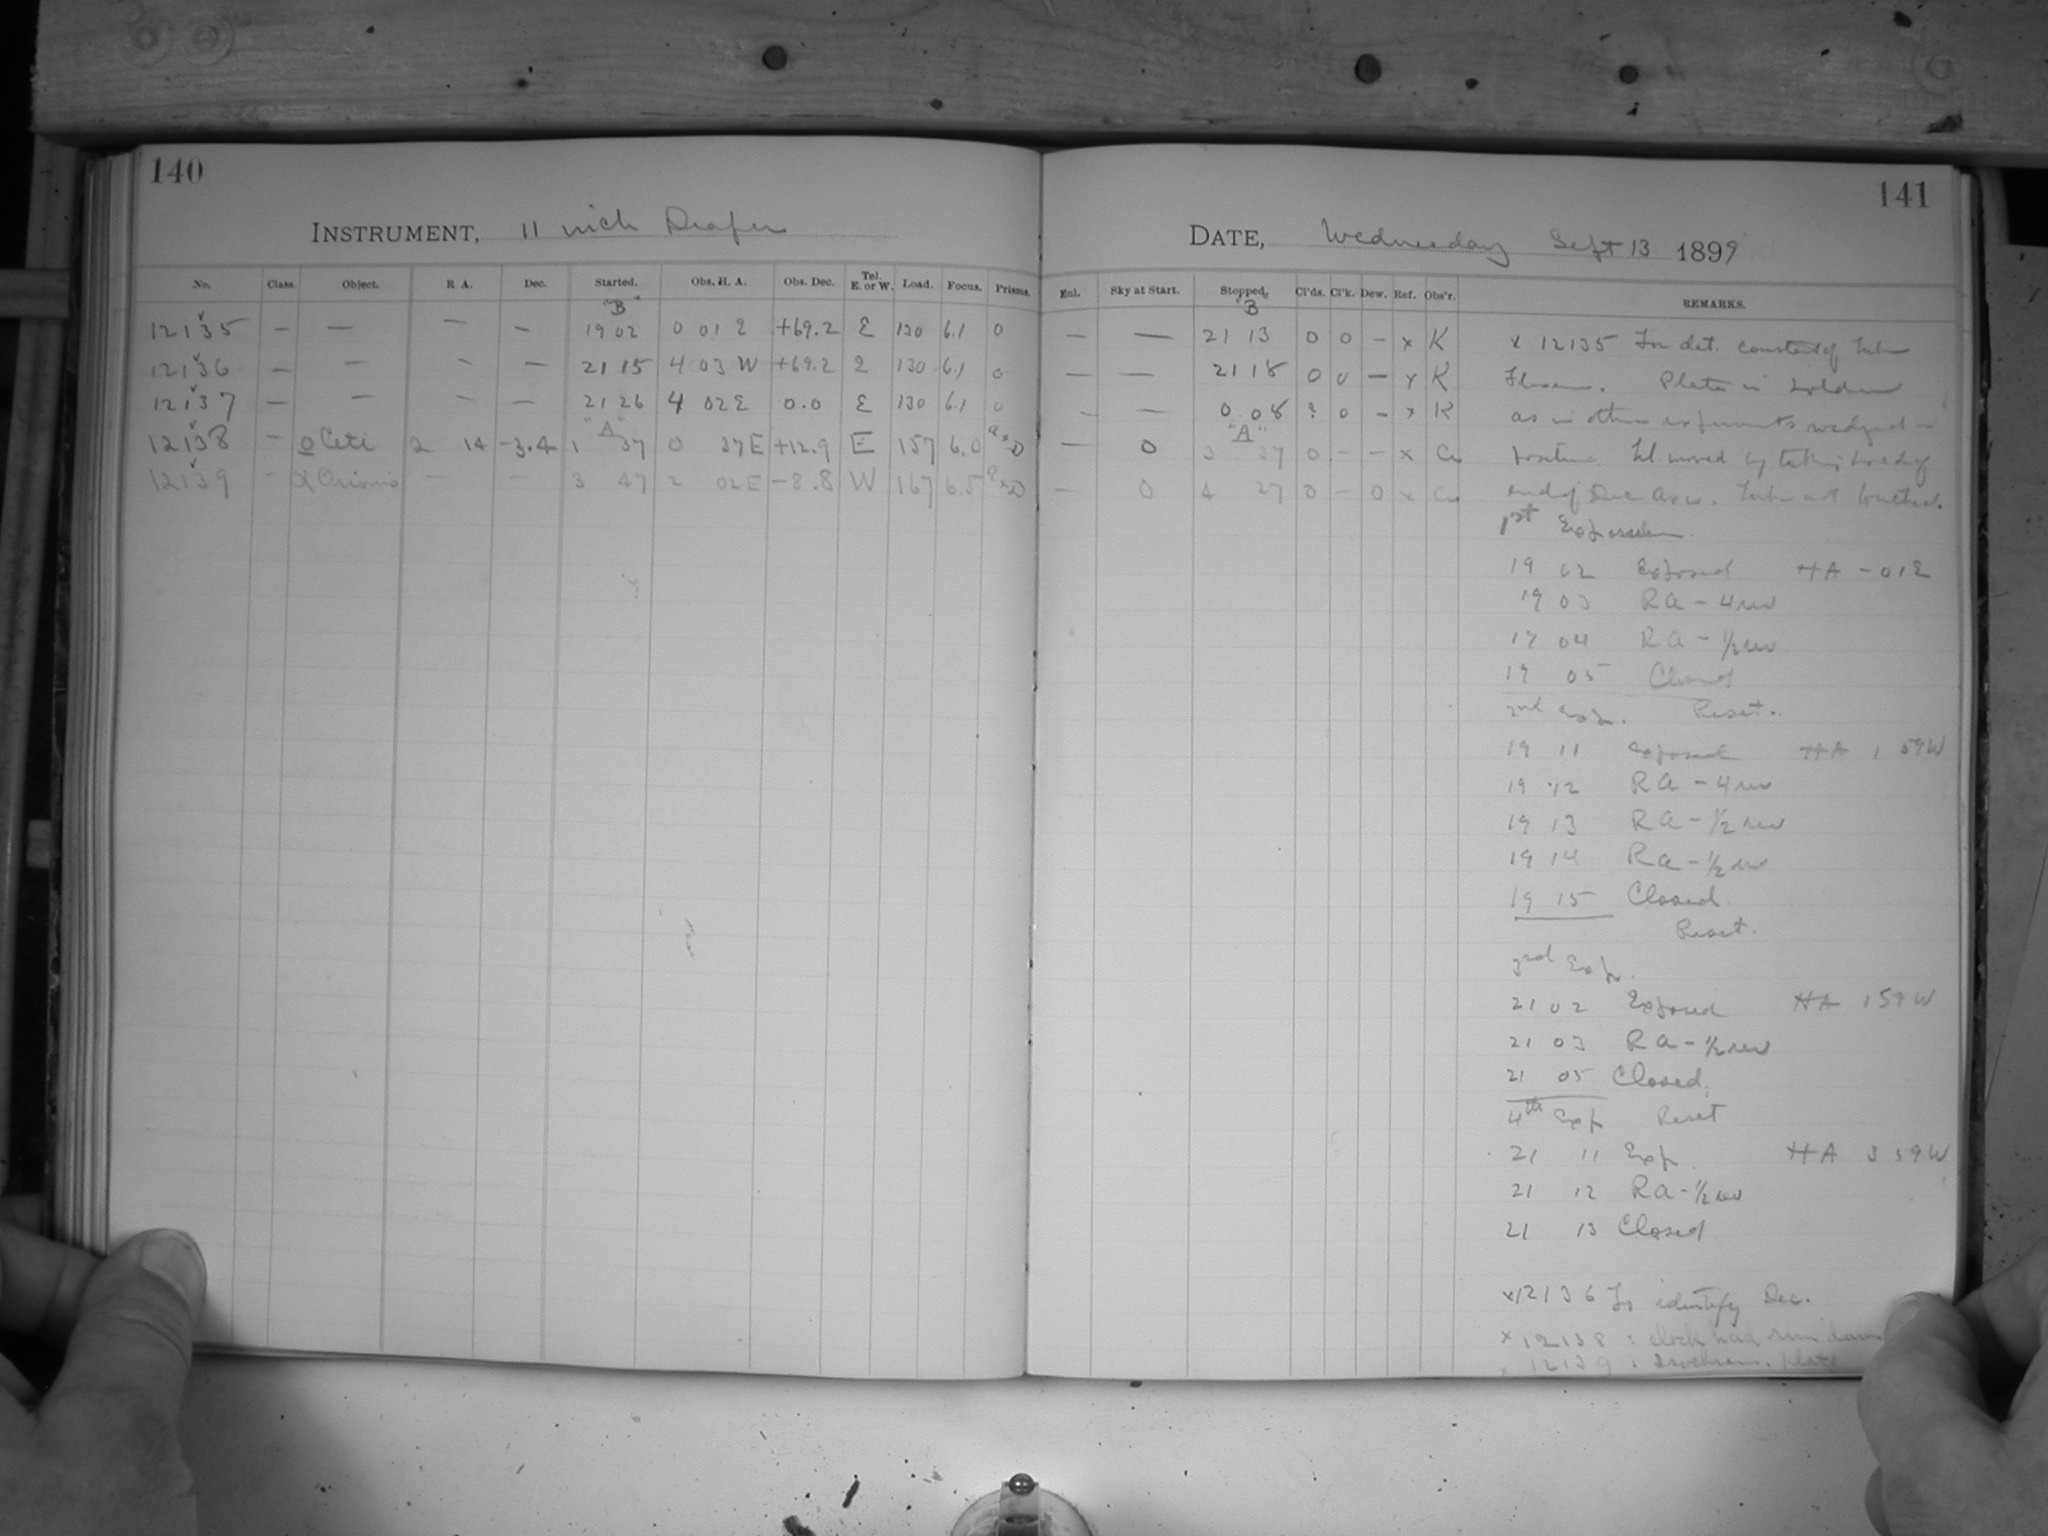 140
INSTRUMENT, 11 inch Draper
No. Class. Object. R. A. Dec. Started. Obs. H. A. Obs. Dec. Tel. E. or W. Load. Focus. Prisms.
"B"
12135 — — — — 19 02 0 01 E +69.2 E 130 6.1 0
12136 — — — — 21 15 4 03 W +69.2 E 130 6.1 0
12137 — — — — 21 26 4 02 E 0.0 E 130 6.1 0
"A"
12138 — o Ceti 2 14 -3.4 1 37 0 37 E +12.9 E 157 6.0
12139 — α Orionis — — 3 47 2 02 E -8.8 W 167 6.5
141
DATE, Wednesday Sept 13 1899
Enl. Sky at Start. Stopped. Cl'ds. Cl'k. Dew. Ref. Obs'r. REMARKS.
B
— — 21 13 0 0 — x K
— — 21 18 0 0 — x K
— — 0 08 ? 0 — x K
"A"
— 0 3 37 0 — — x
— 0 4 27 0 — 0 x
x 12135 For det. constant of tube
Flexure. Plates in holders
as in other experiments wedged in
position. Tel moved by taking hold of
end of Dec axis. Tube not touched.
1st Exposure
19 02 Exposed HA - 01 E
19 03 RA - 4 rev
19 04 RA - 1/2 rev
19 05 Closed
2nd Exp. Reset.
19 11 Exposed HA 1 59 W
19 12 RA - 4 rev
19 13 RA - 1/2 rev
19 14 RA - 1/2 rev
19 15 Closed
Reset.
3rd Exp.
21 02 Exposed HA 1 59 W
21 03 RA - 1/2 rev
21 05 Closed
4th Exp Reset
21 11 Exp. HA 3 59 W
21 12 RA - 1/2 rev
21 13 Closed
x 12136 To identify Dec.
x 12138 : clock had run down
x 12139 : Isochrom. plate